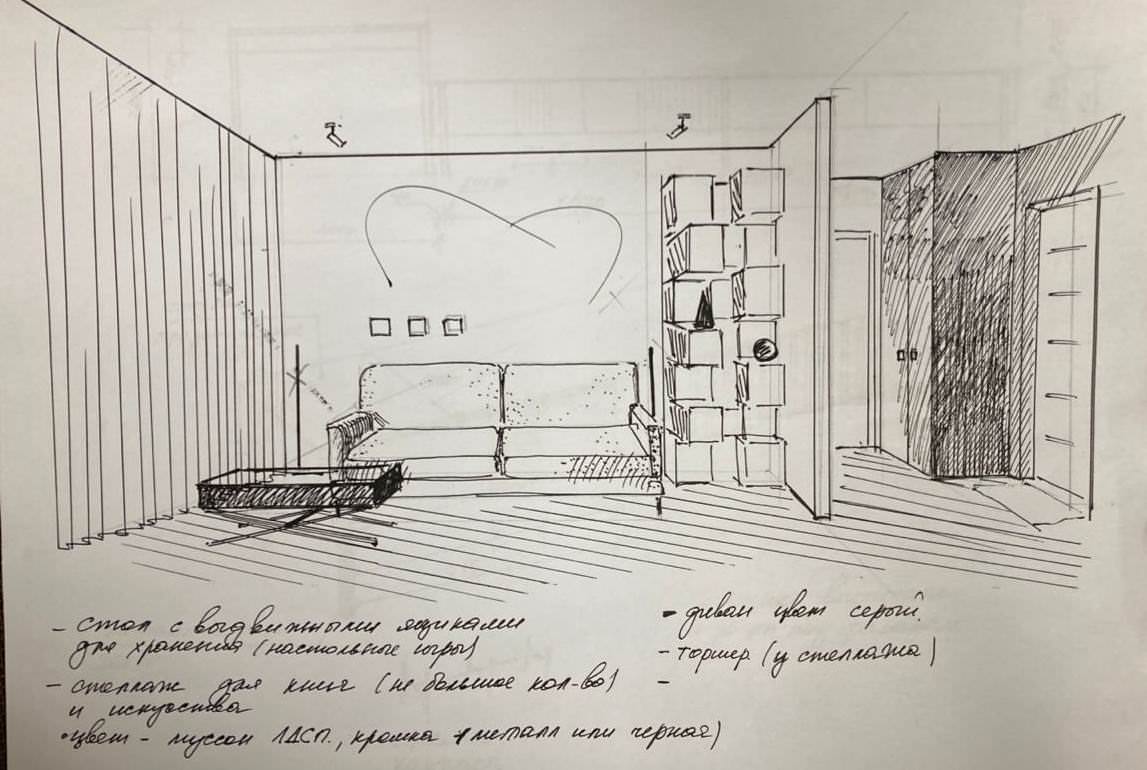 - стол с выдвижными ящиками
для хранения (настольные игры)
- стеллаж для книг (не большое кол-во)
и искусства
• цвет - муссон ЛДСП., кромка (металл или черная)
- диван цвет серый.
- торшер (у стеллажа)
-